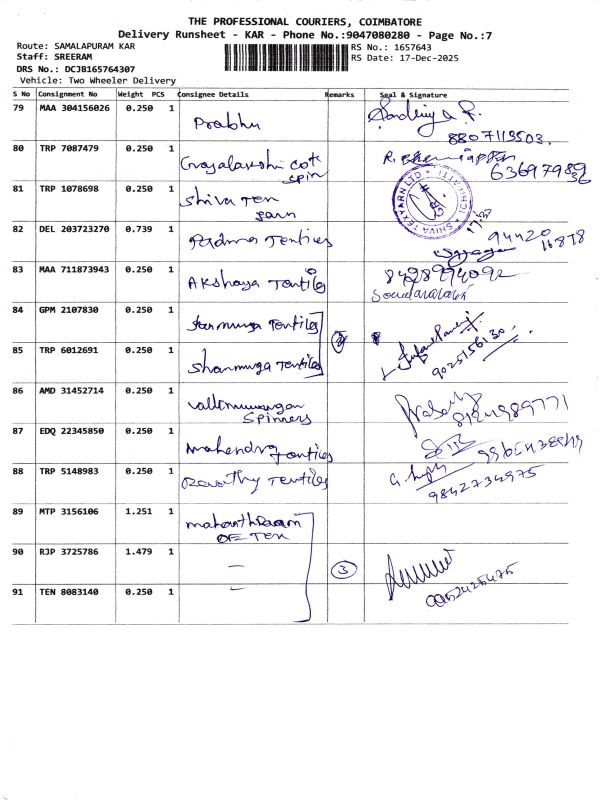 THE PROFESSIONAL COURIERS, COIMBATORE
Delivery Runsheet - KAR - Phone No.:9047080280 - Page No.:7
Route: SAMALAPURAM KAR
RS No.: 1657643
Staff: SREERAM
RS Date: 17-Dec-2025
DRS No.: DCJB165764307
Vehicle: Two Wheeler Delivery
S No Consignment No Weight PCS Consignee Details Remarks Seal & Signature
79 MAA 304156026 0.250 1 Prabhu
8807113503.
80 TRP 7087479 0.250 1 Gnayalakshi cot
spin
81 TRP 1078698 0.250 1 Shiva Tex
yarn
SHIVA TEXYARN LTD
82 DEL 203723270 0.739 1 Padma Textiles
94420
16878
83 MAA 711873943 0.250 1 Akshaya Textiles
8428994092
84 GPM 2107830 0.250 1 Shanmuga Textiles
2
85 TRP 6012691 0.250 1 Shanmuga Textiles
9025156130
86 AMD 31452714 0.250 1 Vallimurugan
Spinners
87 EDQ 22345850 0.250 1 Mahendra Textiles
88 TRP 5148983 0.250 1 Revathy Textiles
9842734975
89 MTP 3156106 1.251 1
OE Tex
90 RJP 3725786 1.479 1 —
3
91 TEN 8083140 0.250 1 —